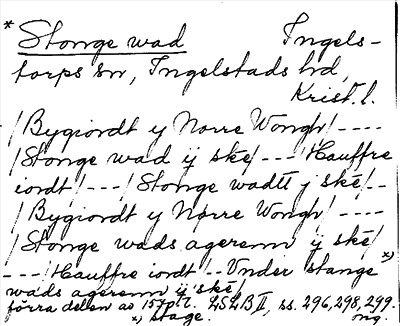 * Stonge wad Ingels-
torps sn, Ingelstads hd,
Krist. l.
/Bygiordt y Norre Wongh/ ----
/Stonge wad ij ske/ --- /Hauffre
iordt/ --- /Stonge wadtt j ske/ --
/Bygiordt y Nørre Wongh/ ----
/Stonge wads agerenn ij ske/
--- /Hauffre iordt -- Vnder stange *)
wads agerenn ij ske/
förra delen av 1570-t. LSLB II, ss. 296, 298, 299.
*) stage. mg.